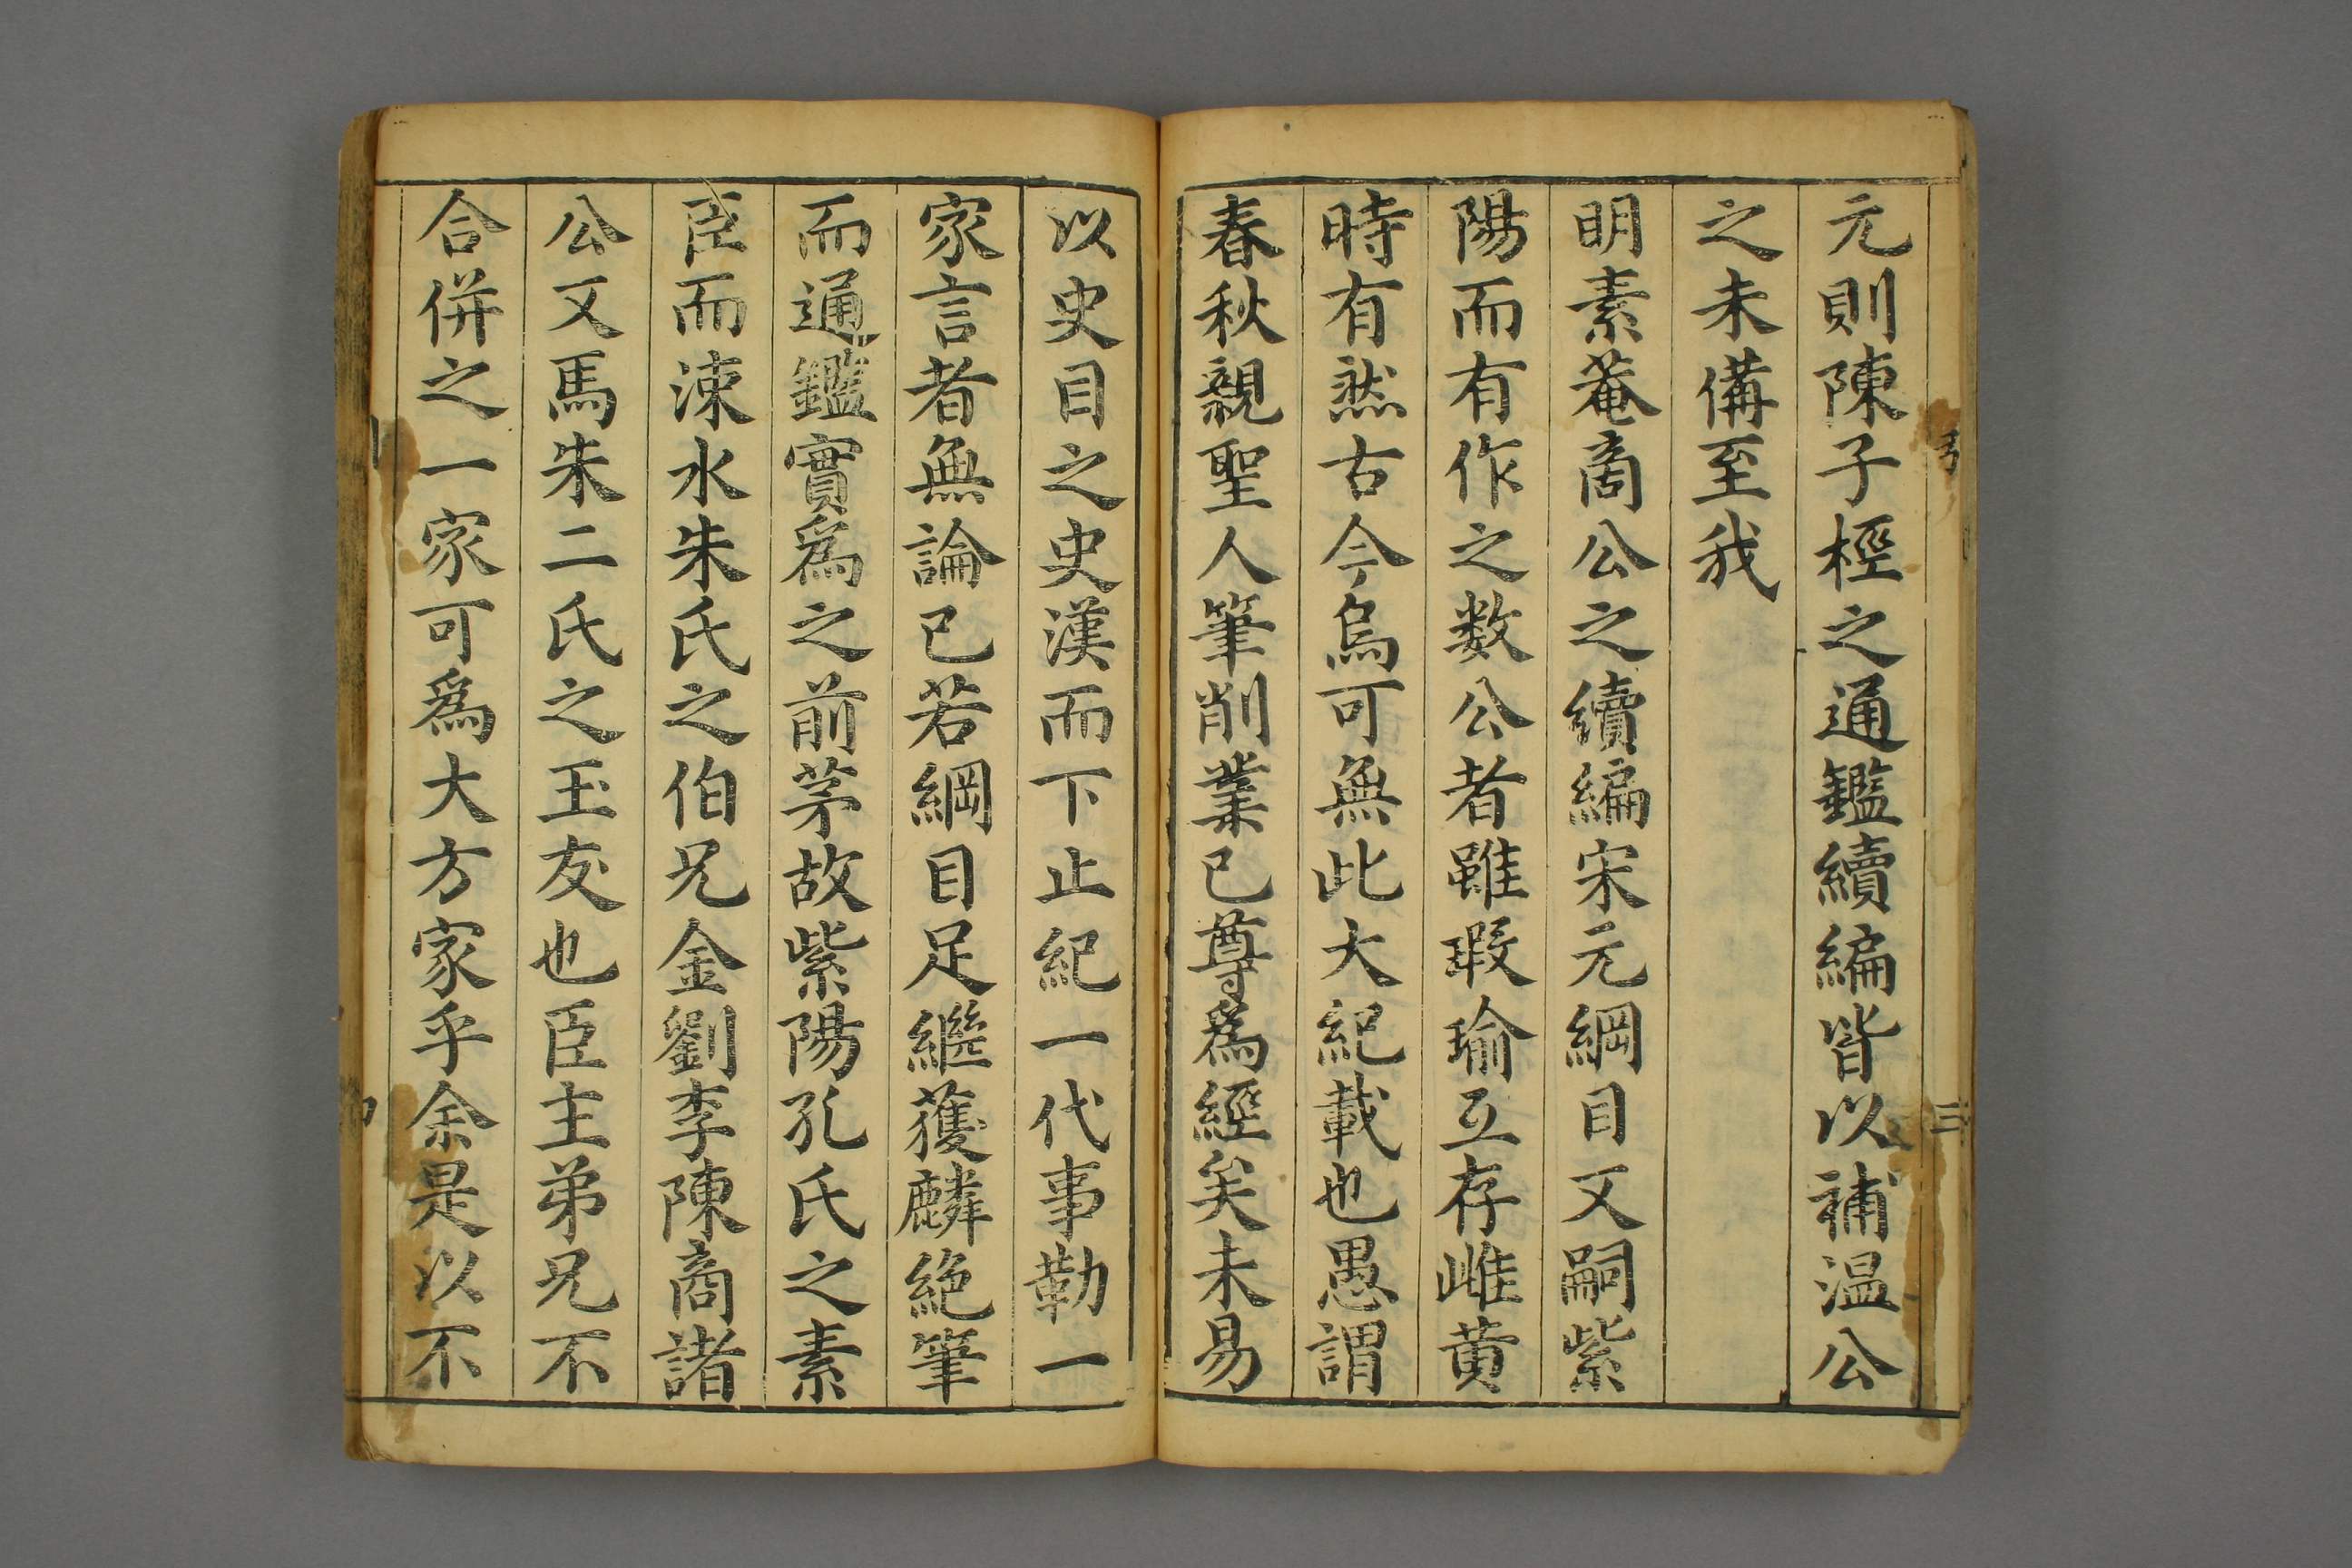 元則陳子桱之通鑑續編皆以補温公
之未備至我
明素菴商公之續編宋元綱目又嗣紫
陽而有作之数公者雖瑕瑜互存雌黄
時有然古今烏可無此大紀載也愚謂
春秋親聖人筆削業已尊為經矣未易
以史目之史漢而下止紀一代事勒一
家言者無論已若綱目足繼獲麟絶筆
而通鑑實為之前茅故紫陽孔氏之素
臣而涑水朱氏之伯兄金劉李陳商諸
公又馬朱二氏之玉友也臣主弟兄不
合併之一家可為大方家乎余是以不
三